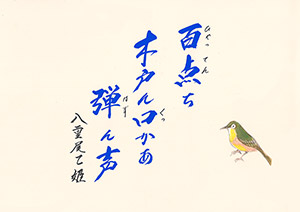 百点ち
ひゃってん
木戸ん口かあ
ぐっ
弾ん声
はず
八重尾乙姫